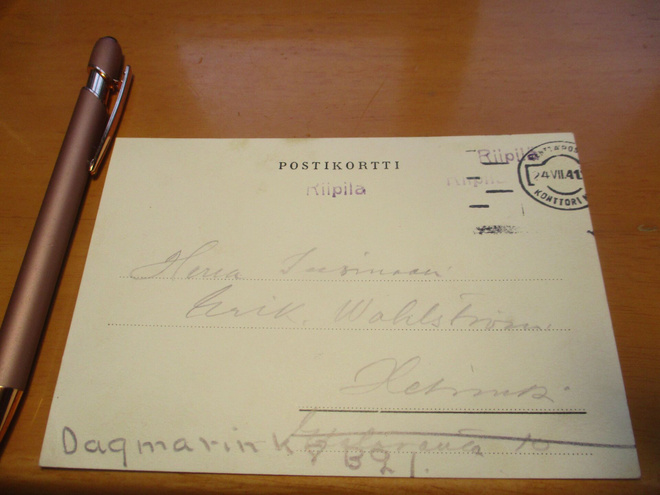 POSTIKORTTI
Riipila
Riipila
Riipila
24.VII.41
KONTTORI
Herra
Erik. Wahlström.
Helsinki
Dagmarink 7 B 21.